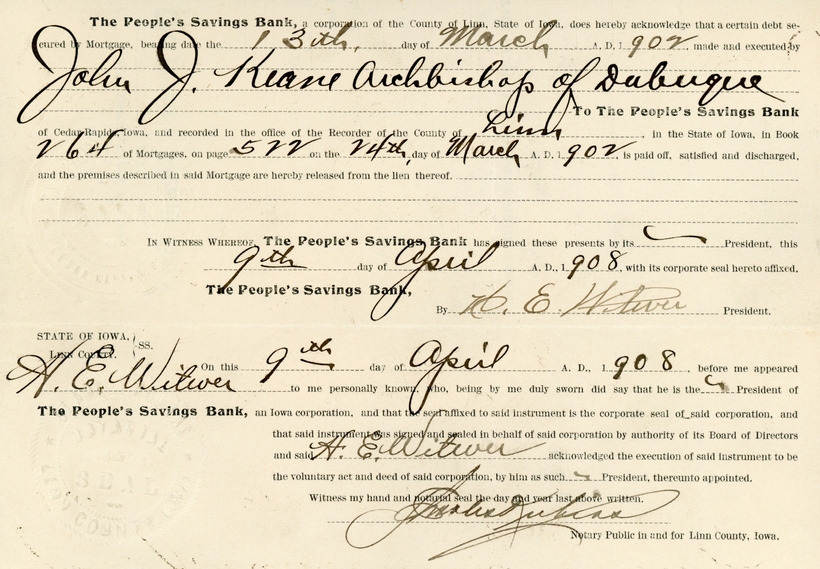 The People's Savings Bank, a corporation of the County of Linn, State of Iowa, does hereby acknowledge that a certain debt se-
cured by Mortgage, bearing date the 13th, day of March A. D. 1902, made and executed by
John J. Keane Archbishop of Dubuque
To The People's Savings Bank
of Cedar Rapids, Iowa, and recorded in the office of the Recorder of the County of Linn, in the State of Iowa, in Book
264 of Mortgages, on page 522 on the 24th, day of March A. D. 1902, is paid off, satisfied and discharged,
and the premises described in said Mortgage are hereby released from the lien thereof.
In Witness Whereof, The People's Savings Bank has signed these presents by its President, this
9th day of April A. D., 1908, with its corporate seal hereto affixed.
The People's Savings Bank,
By H. E. Witwer President.
STATE OF IOWA, SS.
Linn County.
On this 9th day of April A. D., 1908, before me appeared
H. E. Witwer to me personally known, who, being by me duly sworn did say that he is the President of
The People's Savings Bank, an Iowa corporation, and that the seal affixed to said instrument is the corporate seal of said corporation, and
that said instrument was signed and sealed in behalf of said corporation by authority of its Board of Directors
and said H. E. Witwer acknowledged the execution of said instrument to be
the voluntary act and deed of said corporation, by him as such President, thereunto appointed.
Witness my hand and notarial seal the day and year last above written.
Notary Public in and for Linn County, Iowa.